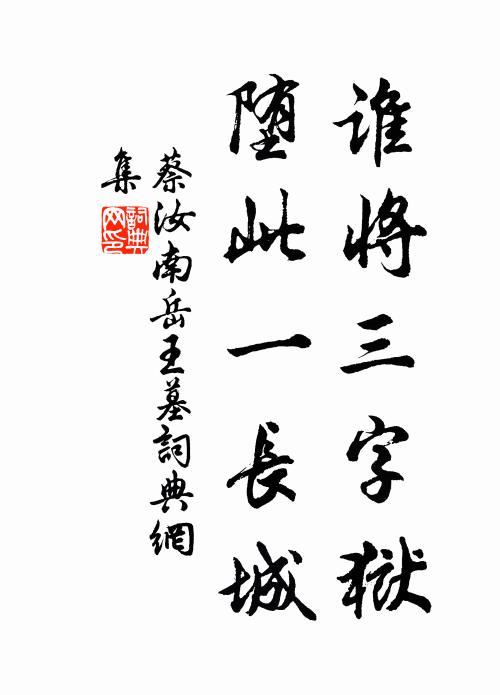 谁将三字獄
堕此一長城
蔡汝南岳王墓詞典網
集
詞典网印